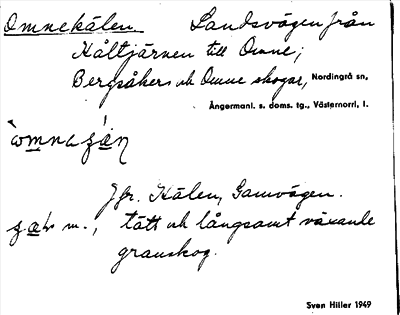 Omnekälen. Landsvägen från
Kåltjärnen till Omne;
Bergsåkers och Omne skogar, Nordingrå sn,
Ångermanl. s. doms. tg., Västernorrl. l.
Jfr. Kälen, Gamvägen.
m., tätt och långsamt växande
granskog.
Sven Hiller 1949